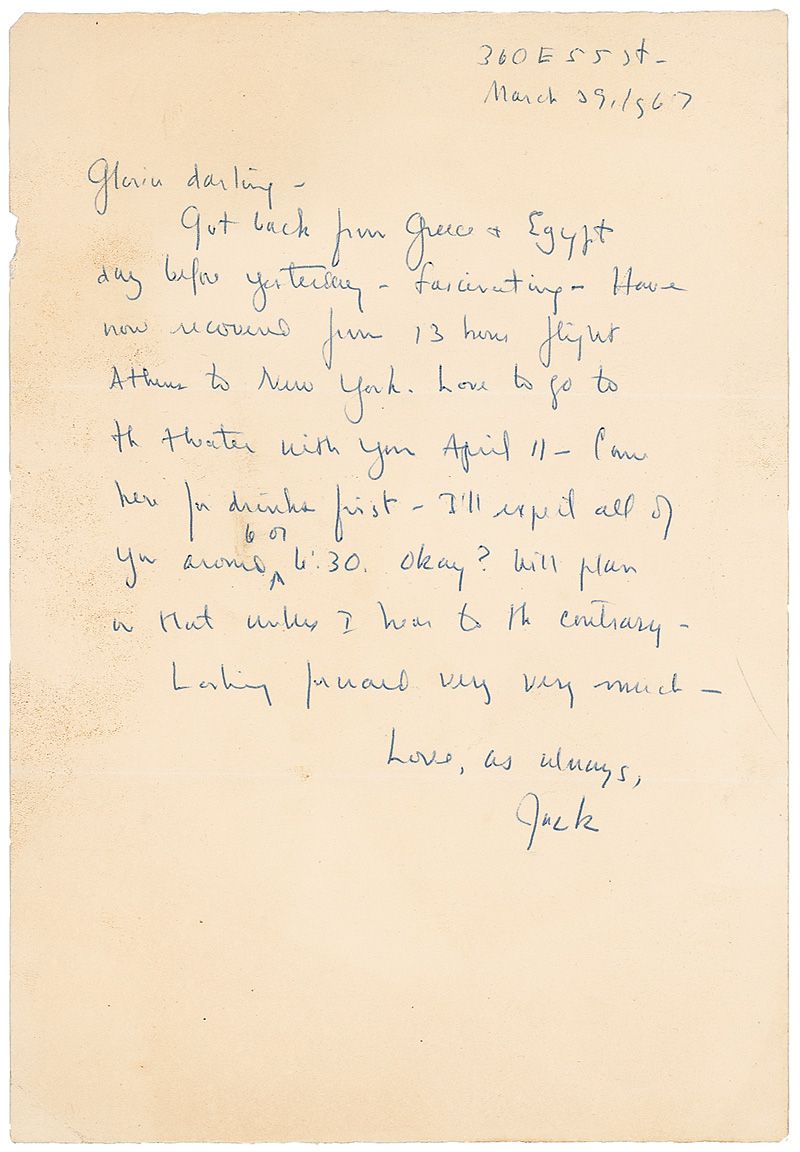 360 E 55 St -
March 29, 1967
Gloria darling -
Got back from Greece + Egypt
day before yesterday - fascinating - Have
now recovered from 13 hours flight
Athens to New York. Love to go to
th theater with you April 11 - Come
here for drinks first - I'll expect all of
6 or
you around 6:30. Okay? Will plan
on that unless I hear to th contrary -
Looking forward very very much -
Love, as always,
Jack